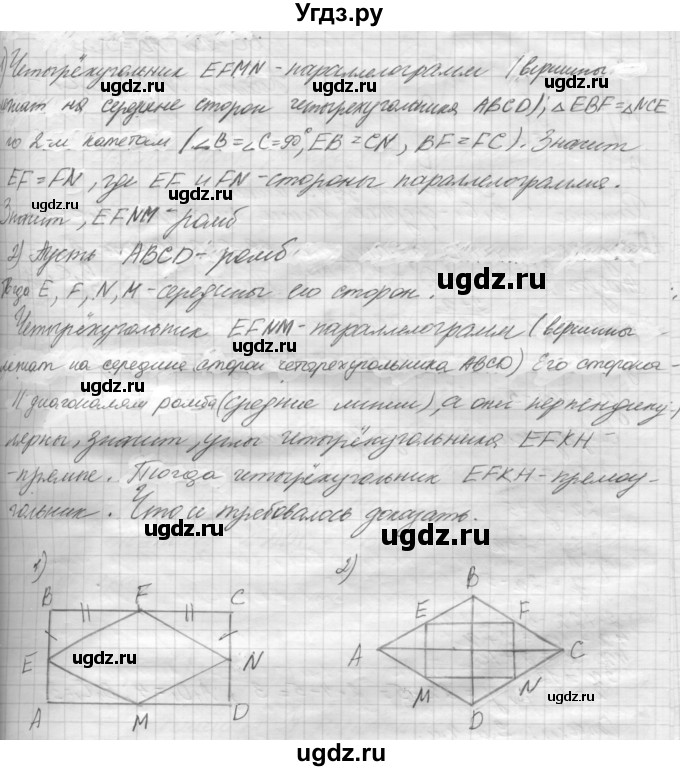 Угдз.ру
1) Четырёхугольник EFMN - параллелограмм (вершины
лежат на середине сторон четырехугольника ABCD); △EBF=△NCF
по 2-м катетам (∠B=∠C=90°, EB=CN, BF=FC). Значит
EF=FN, где EF и FN - стороны параллелограмма.
Значит, EFNM - ромб
2) Пусть ABCD - ромб
Тогда E, F, N, M - середины его сторон.
Четырёхугольник EFNM - параллелограмм (вершины
лежат на середине сторон четорехугольника ABCD) Его стороны -
|| диагоналям ромба (средние линии), а они перпендику-
лярны, значит, углы четырёхугольника EFKH -
- прямые. Тогда четырёхугольник EFKH - прямоу-
гольник. Что и требовалось доказать.
1) 2)
B F C
E N
A M D
B
E F
A C
M N
D
ugdz.ru
ugdz.ru
ugdz.ru
ugdz.ru
ugdz.ru
ugdz.ru
ugdz.ru
ugdz.ru
ugdz.ru
ugdz.ru
ugdz.ru
ugdz.ru
ugdz.ru
ugdz.ru